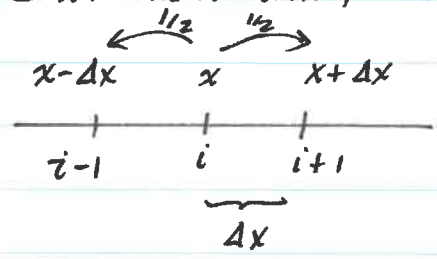 1/2 1/2
x-Δx x x+Δx
i-1 i i+1
Δx